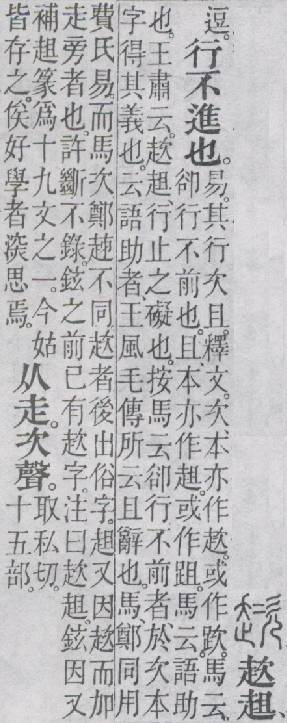 趑趄、
逗。行不進也。
易。其行次且。釋文。次、本亦作趑。或作跌。馬云。
卻行不前也。且、本亦作趄。或作跙。馬云。語助
也。王肅云。趑趄、行止之礙也。按馬云卻行不前者、於次本
字得其義也。云語助者、王風毛傳所云且辭也。馬、鄭同用
費氏易。而馬次鄭趀不同。趑者後出俗字。趄又因趑而加
走旁者也。許斷不錄。鉉之前已有趑字。注曰趑趄。鉉因又
補趄篆爲十九文之一。今姑
皆存之。俟好學者㴱思焉。
从走。次聲。
取私切。十五部。